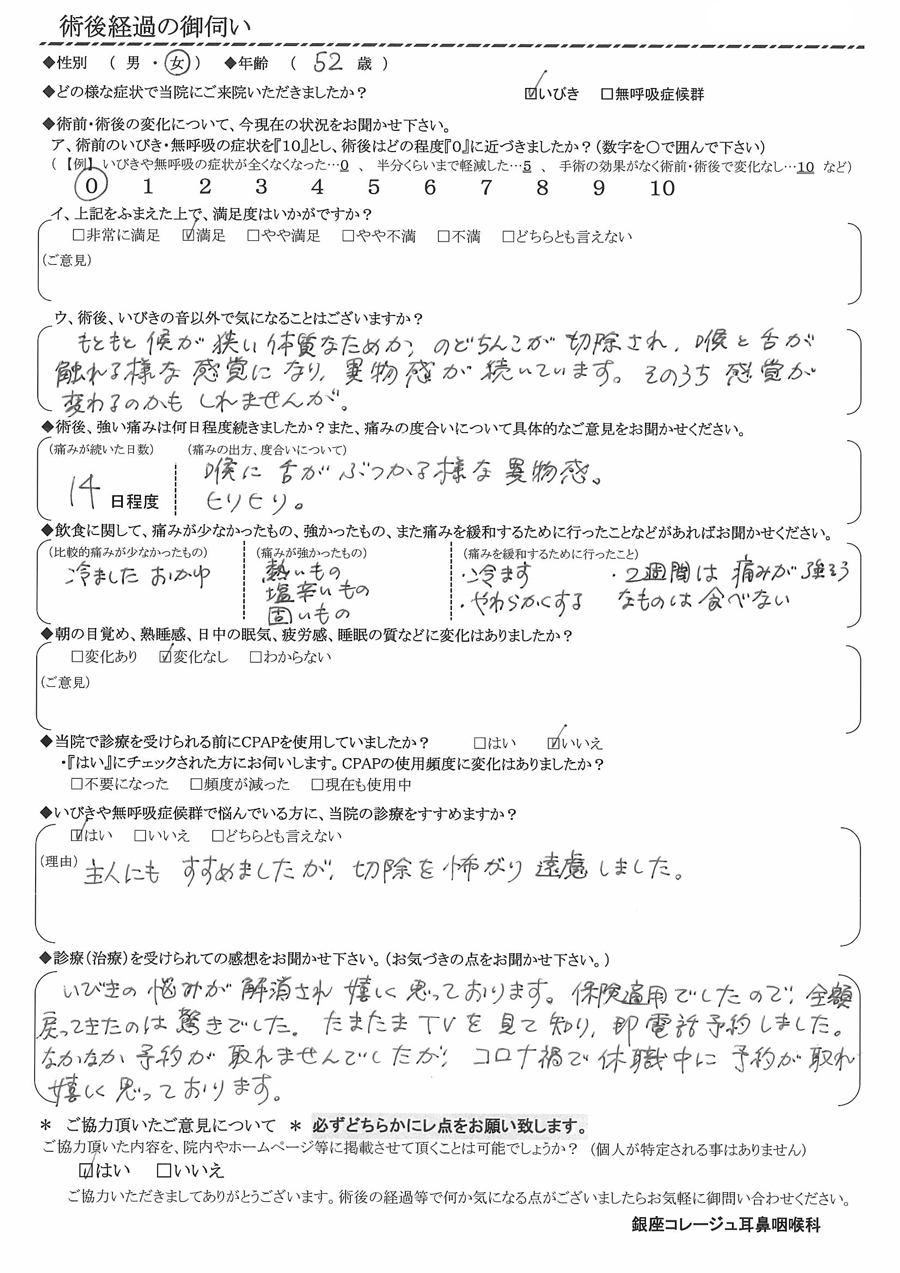 術後経過の御伺い
◆性別 ( 男 ・ 女 ) ◆年齢 ( 52 歳 )
◆どの様な症状で当院にご来院いただきましたか? ☑いびき □無呼吸症候群
◆術前・術後の変化について、今現在の状況をお聞かせ下さい。
ア、術前のいびき・無呼吸の症状を『10』とし、術後はどの程度『0』に近づきましたか?(数字を○で囲んで下さい)
(【例】いびきや無呼吸の症状が全くなくなった…0 、 半分くらいまで軽減した…5 、 手術の効果がなく術前・術後で変化なし…10 など)
0 1 2 3 4 5 6 7 8 9 10
イ、上記をふまえた上で、満足度はいかがですか?
□非常に満足 ☑満足 □やや満足 □やや不満 □不満 □どちらとも言えない
(ご意見)
ウ、術後、いびきの音以外で気になることはございますか?
もともと候が狭い体質なためか、のどちんこが切除され、喉と舌が
触れる様な感覚になり、異物感が続いています。そのうち感覚が
変わるのかもしれませんが。
◆術後、強い痛みは何日程度続きましたか?また、痛みの度合いについて具体的なご意見をお聞かせください。
(痛みが続いた日数) (痛みの出方、度合いについて)
14 日程度 喉に舌がぶつかる様な異物感。
ヒリヒリ。
◆飲食に関して、痛みが少なかったもの、強かったもの、また痛みを緩和するために行ったことなどがあればお聞かせください。
(比較的痛みが少なかったもの) (痛みが強かったもの) (痛みを緩和するために行ったこと)
冷ました おかゆ 熱いもの ・冷ます ・2週間は痛みが強そう
塩辛いもの ・やわらかくする なものは食べない
固いもの
◆朝の目覚め、熟睡感、日中の眠気、疲労感、睡眠の質などに変化はありましたか?
□変化あり ☑変化なし □わからない
(ご意見)
◆当院で診療を受けられる前にCPAPを使用していましたか? □はい ☑いいえ
・『はい』にチェックされた方にお伺いします。CPAPの使用頻度に変化はありましたか?
□不要になった □頻度が減った □現在も使用中
◆いびきや無呼吸症候群で悩んでいる方に、当院の診療をすすめますか?
☑はい □いいえ □どちらとも言えない
(理由) 主人にもすすめましたが、切除を怖がり遠慮しました。
◆診療(治療)を受けられての感想をお聞かせ下さい。(お気づきの点をお聞かせ下さい。)
いびきの悩みが解消され嬉しく思っております。保険適用でしたので、全額
戻ってきたのは驚きでした。たまたまTVを見て知り、即電話予約しました。
なかなか予約が取れませんでしたが、コロナ禍で休職中に予約が取れ
嬉しく思っております。
* ご協力頂いたご意見について * 必ずどちらかにレ点をお願い致します。
ご協力頂いた内容を、院内やホームページ等に掲載させて頂くことは可能でしょうか? (個人が特定される事はありません)
☑はい □いいえ
ご協力いただきましてありがとうございます。術後の経過等で何か気になる点がございましたらお気軽に御問い合わせください。
銀座コレージュ耳鼻咽喉科